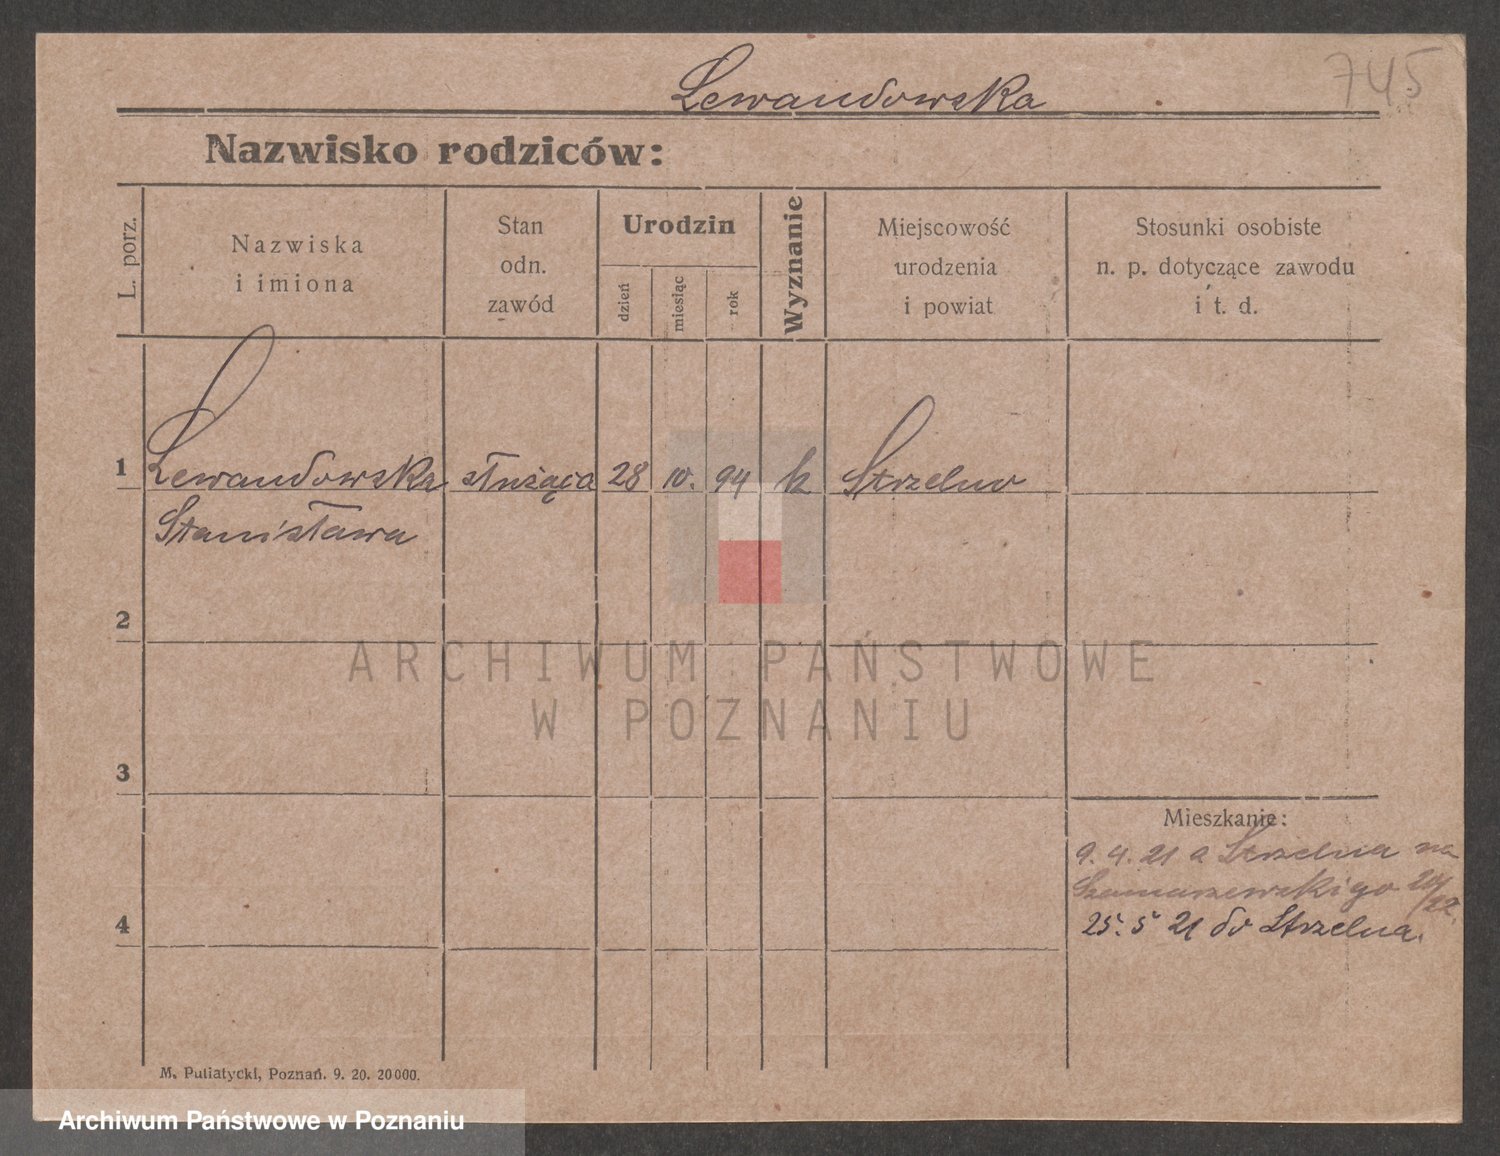 745
Lewandowska
Nazwisko rodziców:
L. porz.
Nazwiska
i imiona
Stan
odn.
zawód
Urodzin
dzień
miesiąc
rok
Wyznanie
Miejscowość
urodzenia
i powiat
Stosunki osobiste
n. p. dotyczące zawodu
i t. d.
1
Lewandowska służąca 28 10. 94 k Strzelno
Stanisława
2
ARCHIWUM PAŃSTWOWE
W POZNANIU
3
Mieszkanie:
9. 4. 21 a Strzelna na
Szamarzewskigo 20/22.
4
25. 5 21 do Strzelna.
M. Putiatycki, Poznań. 9. 20. 20000.
Archiwum Państwowe w Poznaniu